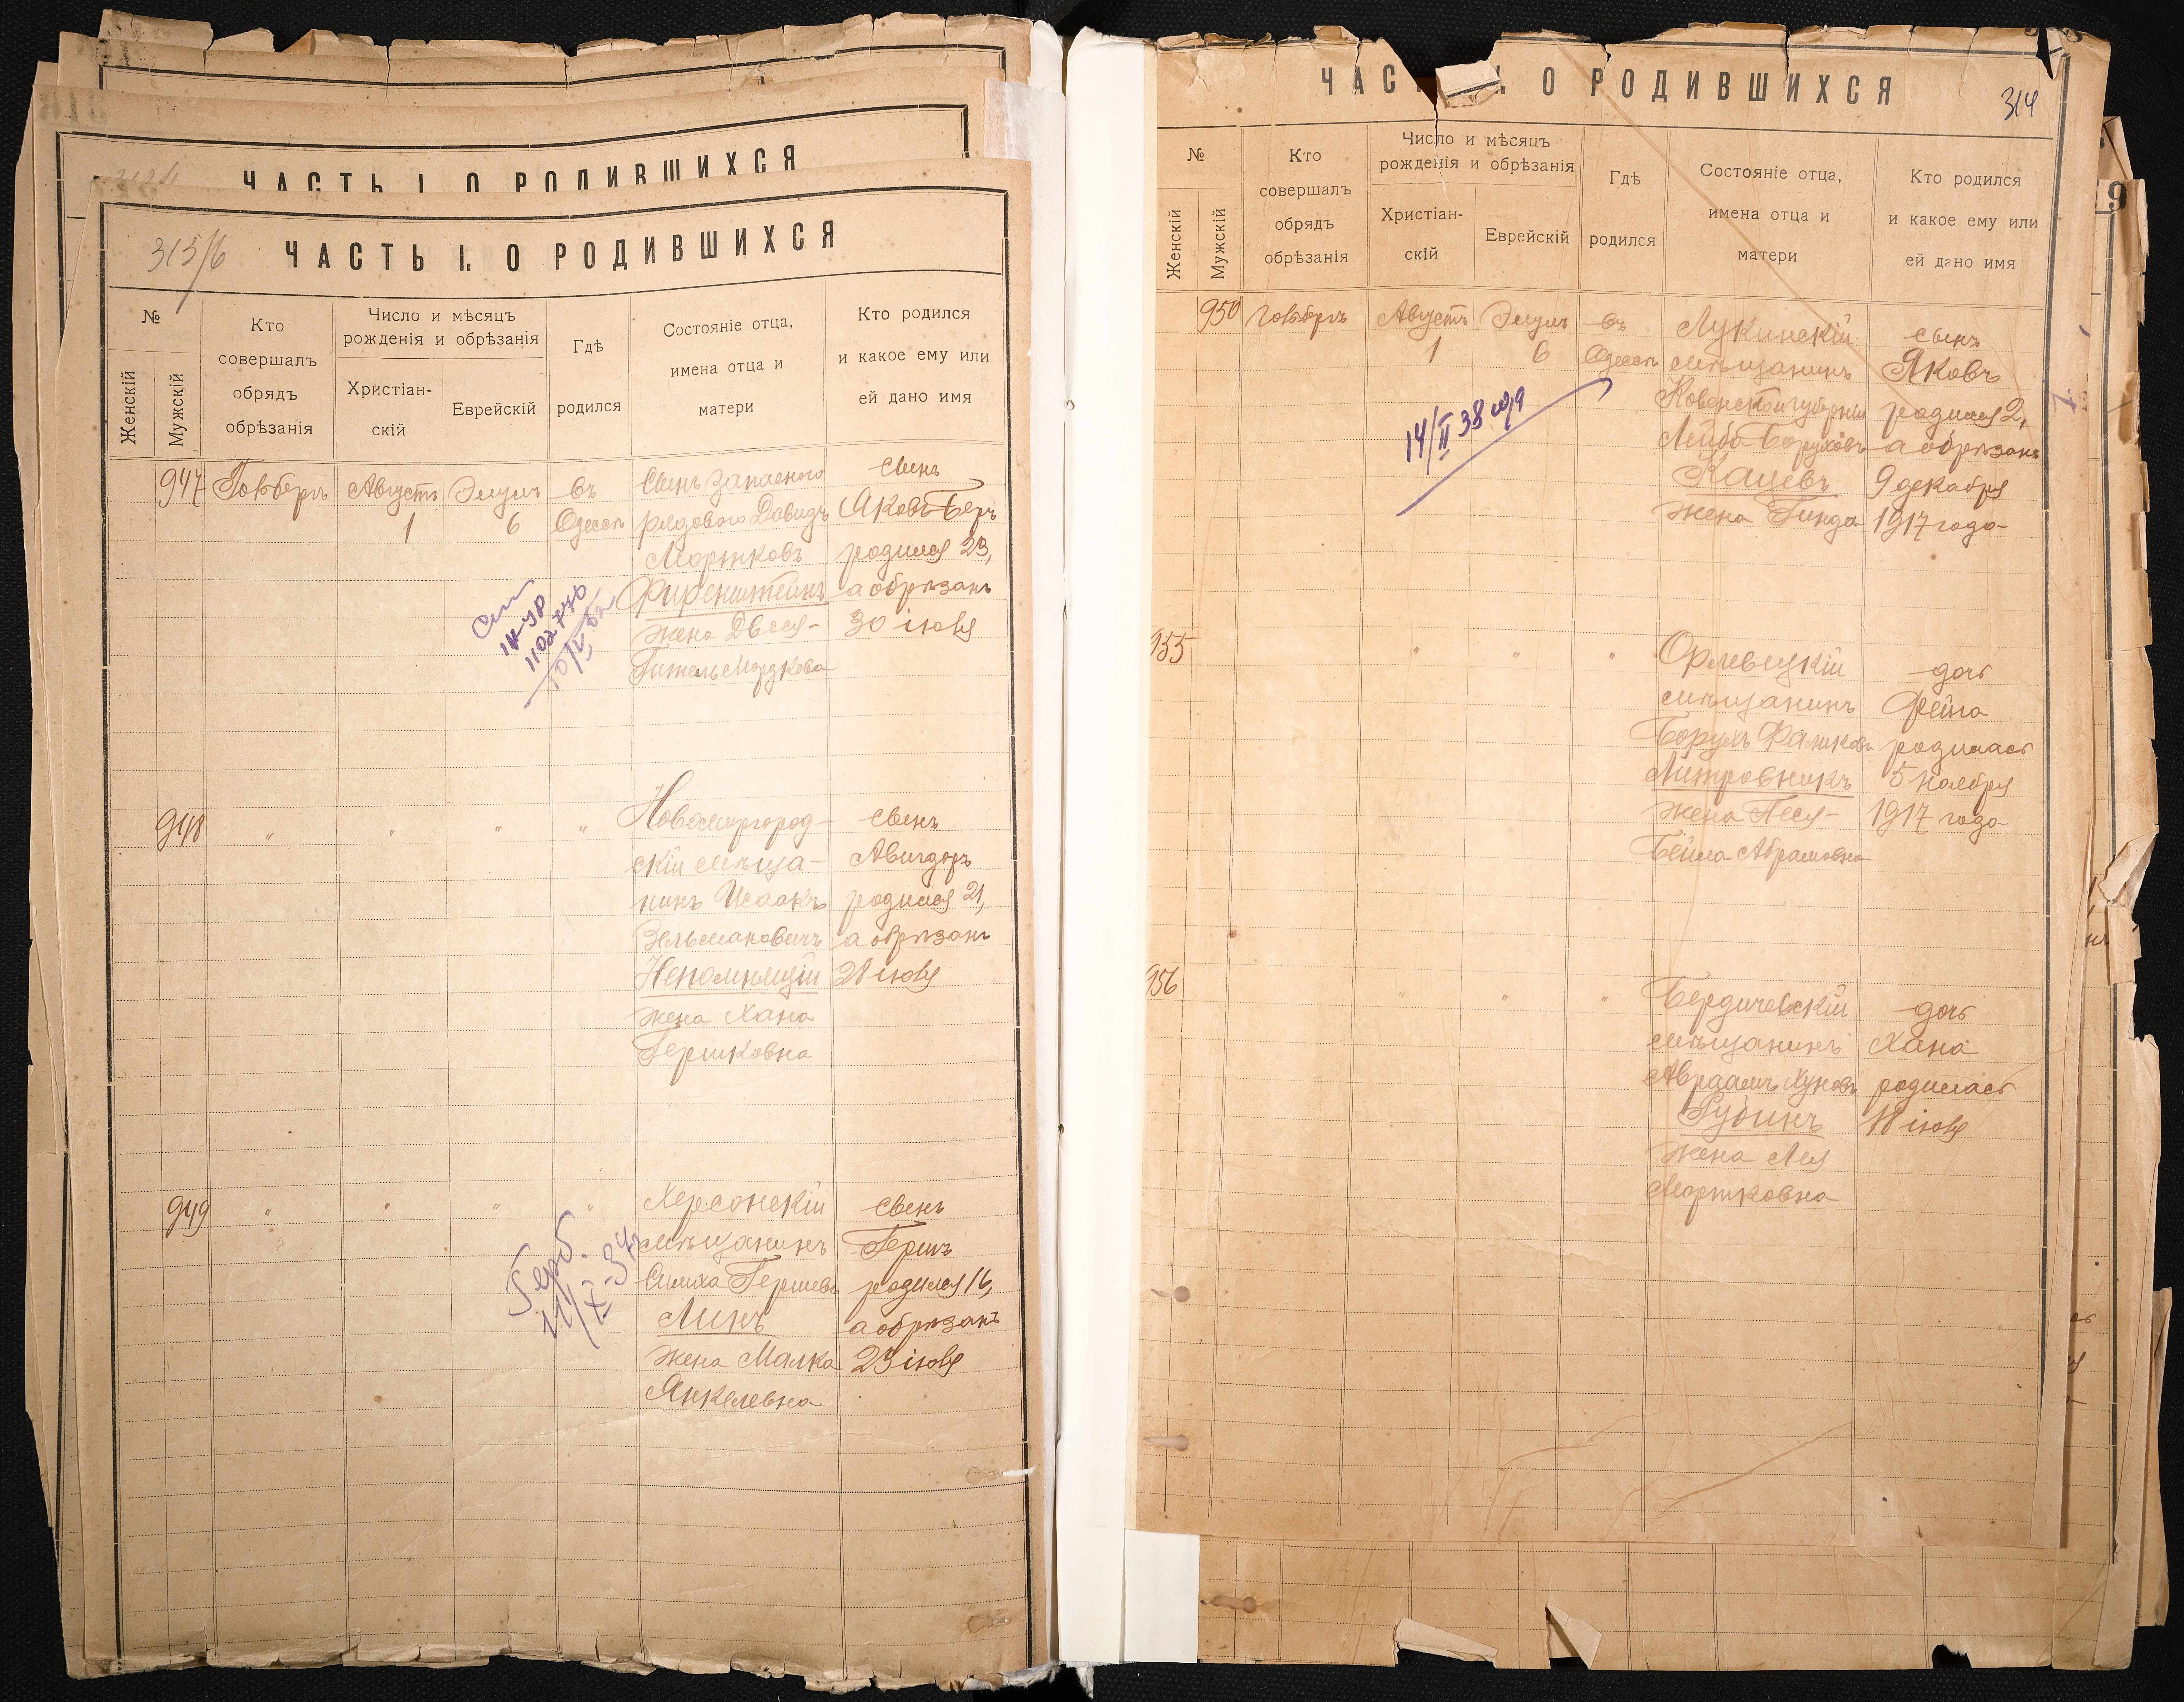 ЧАСТЬ I. О РОДИВШИХСЯ
313/6
ЧАСТЬ I. О РОДИВШИХСЯ
№
Женскій
Мужскій
Кто
совершалъ
обрядъ
обрѣзанія
Число и мѣсяцъ
рожденія и обрѣзанія
Христіан-
скій
Еврейскій
Гдѣ
родился
Состояніе отца,
имена отца и
матери
Кто родился
и какое ему или
ей дано имя
947
Августъ
1
Элулъ
6
въ
Одессѣ
Сынъ запасного
рядового Давидъ
Мортковъ
жена Двося-
Гитель Мордкова
сынъ
Яковъ-Беръ
родился 23,
а обрѣзанъ
30 іюля
10/V 52
948
" " " "
Новомиргород-
скій мѣща-
нинъ Исаакъ
Зельмановичъ
Непомнящій
жена Хана
Гершковна
сынъ
Авигдоръ
родился 21,
а обрѣзанъ
28 іюля
949
" " " "
Херсонскій
мѣщанинъ
Симха Гершевъ
Линъ
жена Малка
Янкелевна
сынъ
Гершъ
родился 16,
а обрѣзанъ
23 іюля
Герб.
11/X-34г
ЧАС I. О РОДИВШИХСЯ
314
№
Женскій
Мужскій
Кто
совершалъ
обрядъ
обрѣзанія
Число и мѣсяцъ
рожденія и обрѣзанія
Христіан-
скій
Еврейскій
Гдѣ
родился
Состояніе отца,
имена отца и
матери
Кто родился
и какое ему или
ей дано имя
950
Августъ
1
Элулъ
6
въ
Одессѣ
мѣщанинъ
Ковенской губерніи
Лейба Боруховъ
Кацевъ
жена Гинда
сынъ
Яковъ
родился 2,
а обрѣзанъ
9 декабря
1917 года
14/II 38 года
955
" " "
мѣщанинъ
Борухъ Фаликовъ
жена Песя-
Бейла Абрамовна
дочь
Фейга
родилась
5 ноября
1917 года
956
" " "
Бердичевскій
мѣщанинъ
Авраамъ Хуновъ
Рубинъ
жена Лея
Мортковна
дочь
Хана
родилась
18 іюля